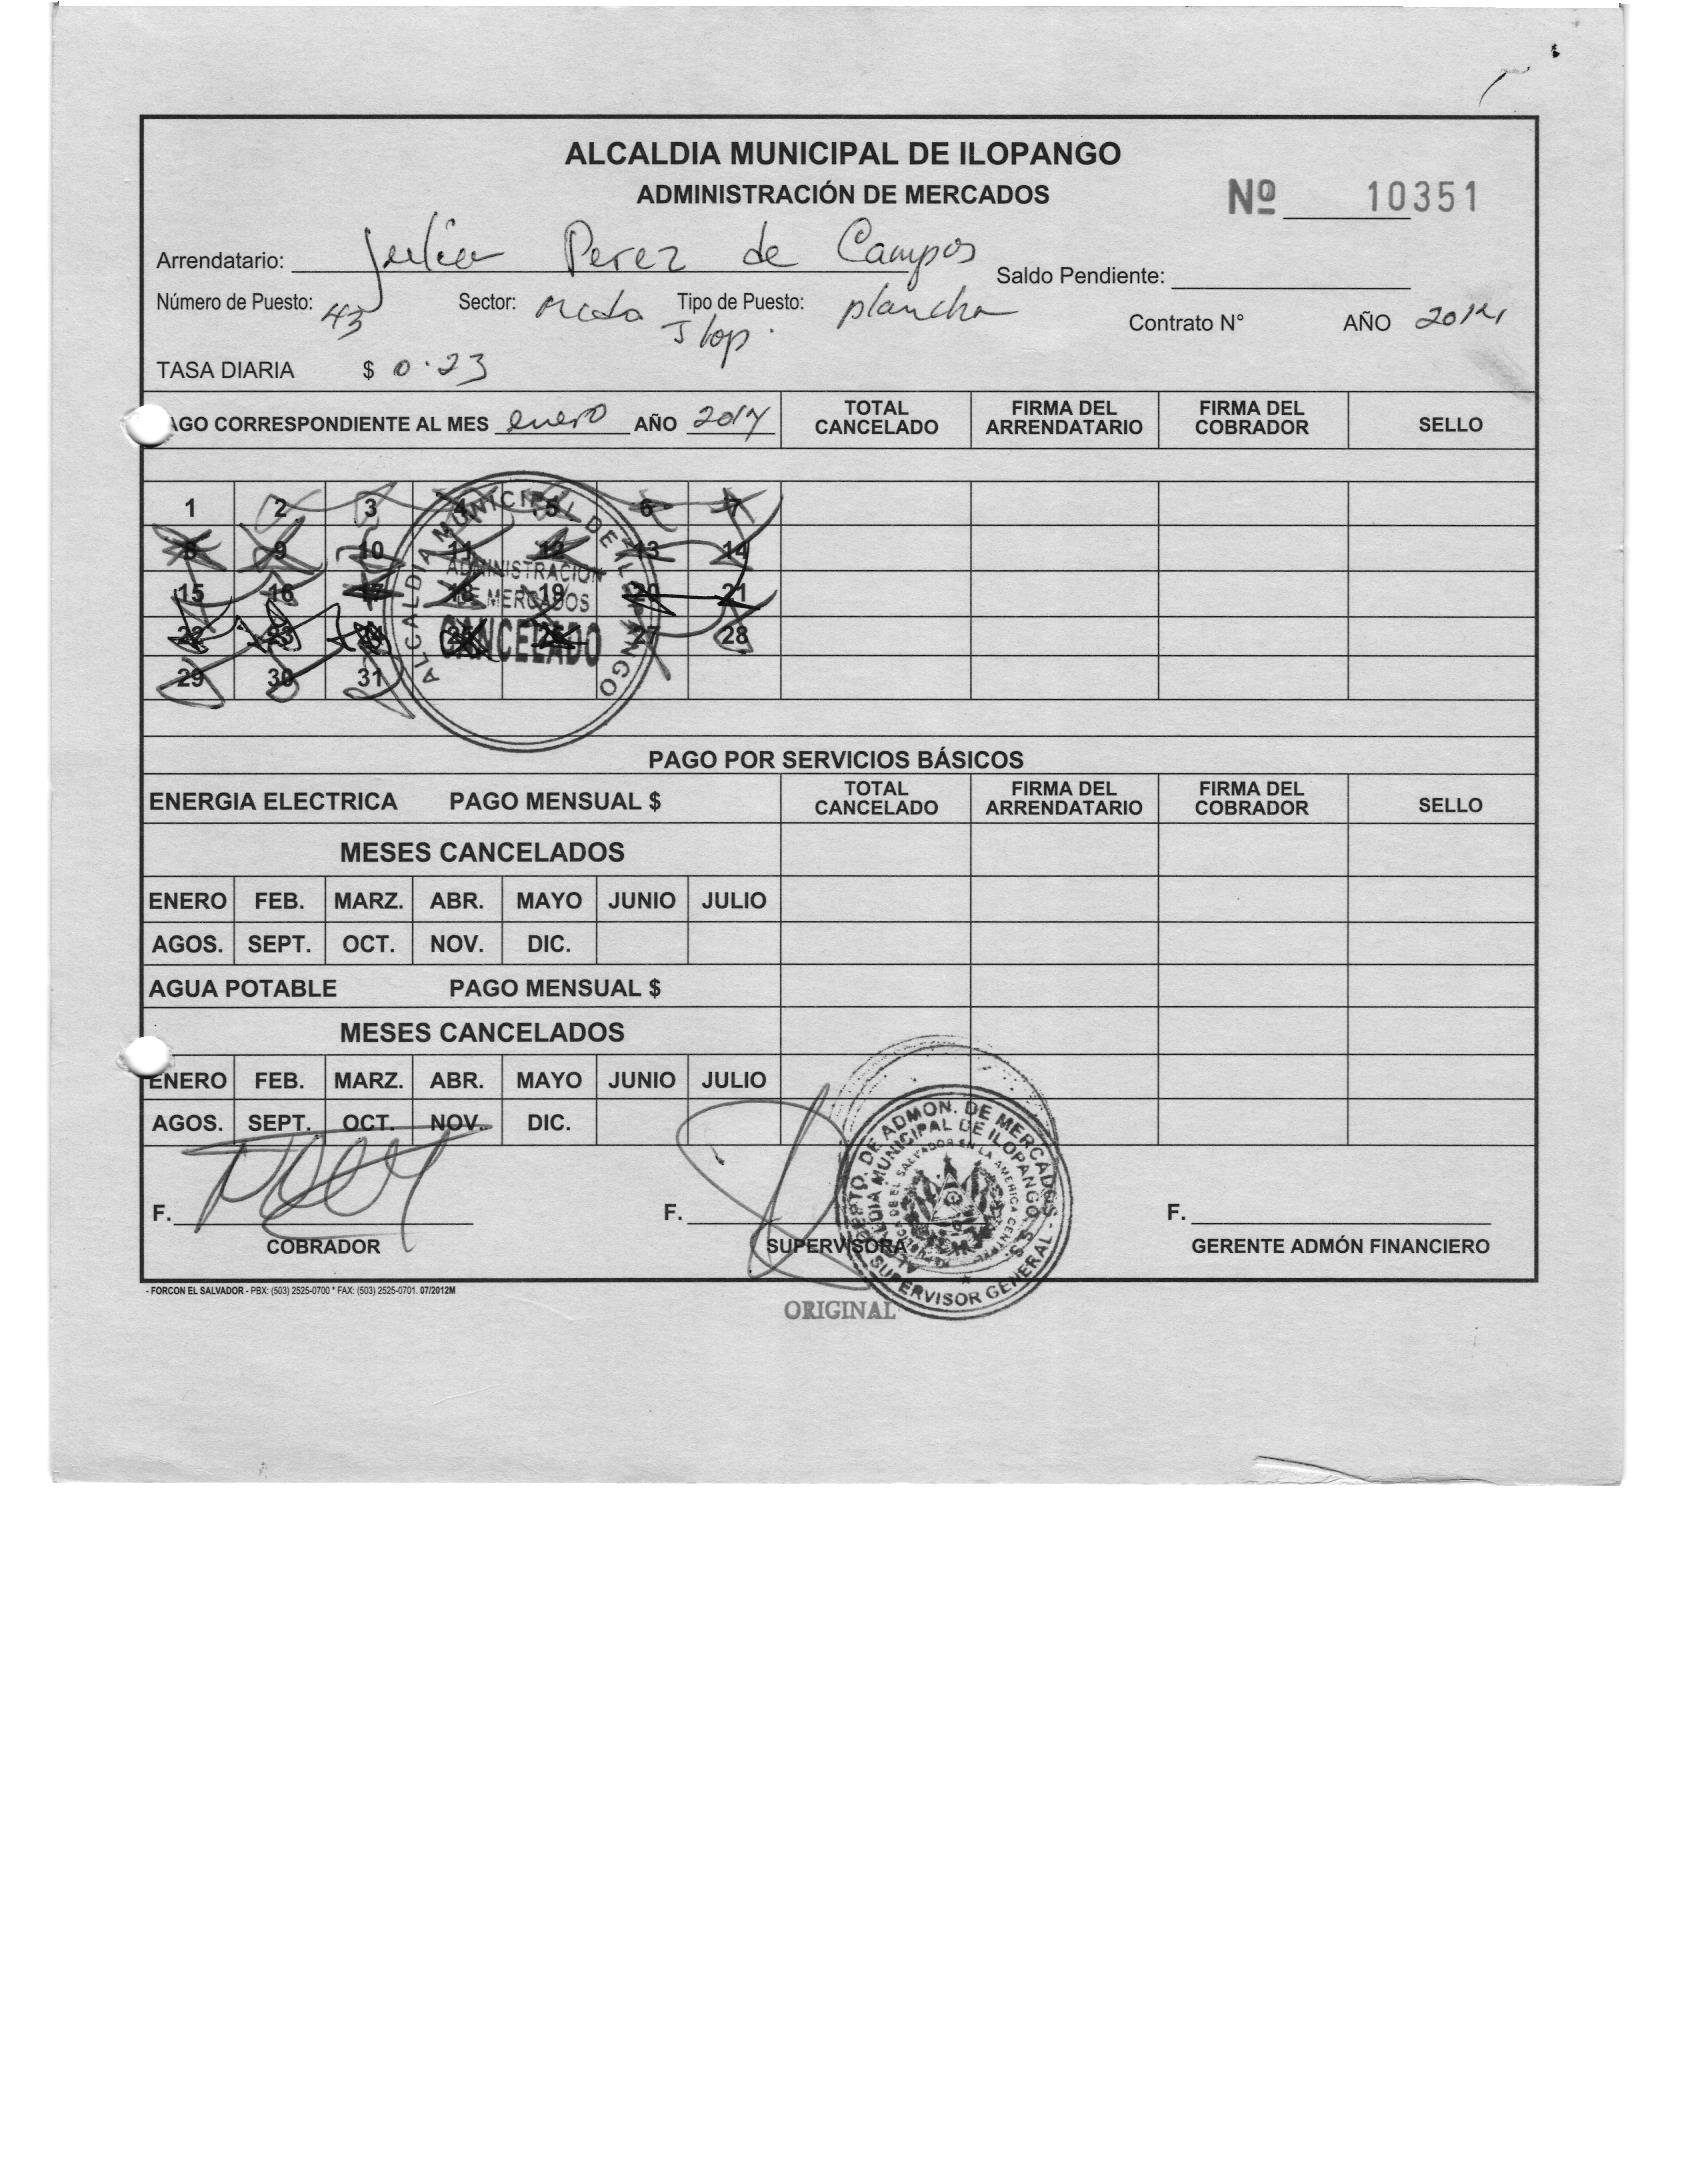 ALCALDIA MUNICIPAL DE ILOPANGO
ADMINISTRACIÓN DE MERCADOS
Nº 10351
Arrendatario: Julia Perez de Campos
Saldo Pendiente:
Número de Puesto: 43 Sector: Mcdo Ilop. Tipo de Puesto: plancha
Contrato N° AÑO 2014
TASA DIARIA $ 0.23
AGO CORRESPONDIENTE AL MES enero AÑO 2014 TOTAL CANCELADO FIRMA DEL ARRENDATARIO FIRMA DEL COBRADOR SELLO
1 2 3 4 5 6 7
8 9 10 11 12 13 14
15 16 17 18 19 20 21
22 23 24 25 26 27 28
29 30 31
ALCALDIA MUNICIPAL DE ILOPANGO
ADMINISTRACION
DE MERCADOS
CANCELADO
PAGO POR SERVICIOS BÁSICOS
ENERGIA ELECTRICA PAGO MENSUAL $ TOTAL CANCELADO FIRMA DEL ARRENDATARIO FIRMA DEL COBRADOR SELLO
MESES CANCELADOS
ENERO FEB. MARZ. ABR. MAYO JUNIO JULIO
AGOS. SEPT. OCT. NOV. DIC.
AGUA POTABLE PAGO MENSUAL $
MESES CANCELADOS
ENERO FEB. MARZ. ABR. MAYO JUNIO JULIO
AGOS. SEPT. OCT. NOV. DIC.
DEPTO. DE ADMON. DE MERCADOS - S.S.
ALCALDIA MUNICIPAL DE ILOPANGO
REPUBLICA DE EL SALVADOR EN LA AMERICA CENTRAL
SUPERVISOR GENERAL
F. F. F.
COBRADOR SUPERVISORA GERENTE ADMÓN FINANCIERO
- FORCON EL SALVADOR - PBX: (503) 2525-0700 * FAX: (503) 2525-0701. 07/2012M
ORIGINAL